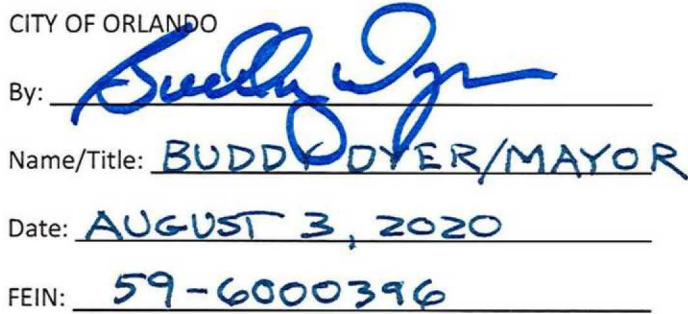 CITY OF ORLANDO
By: Buddy Dyer
Name/Title: BUDDY DYER/MAYOR
Date: AUGUST 3, 2020
FEIN: 59-6000396